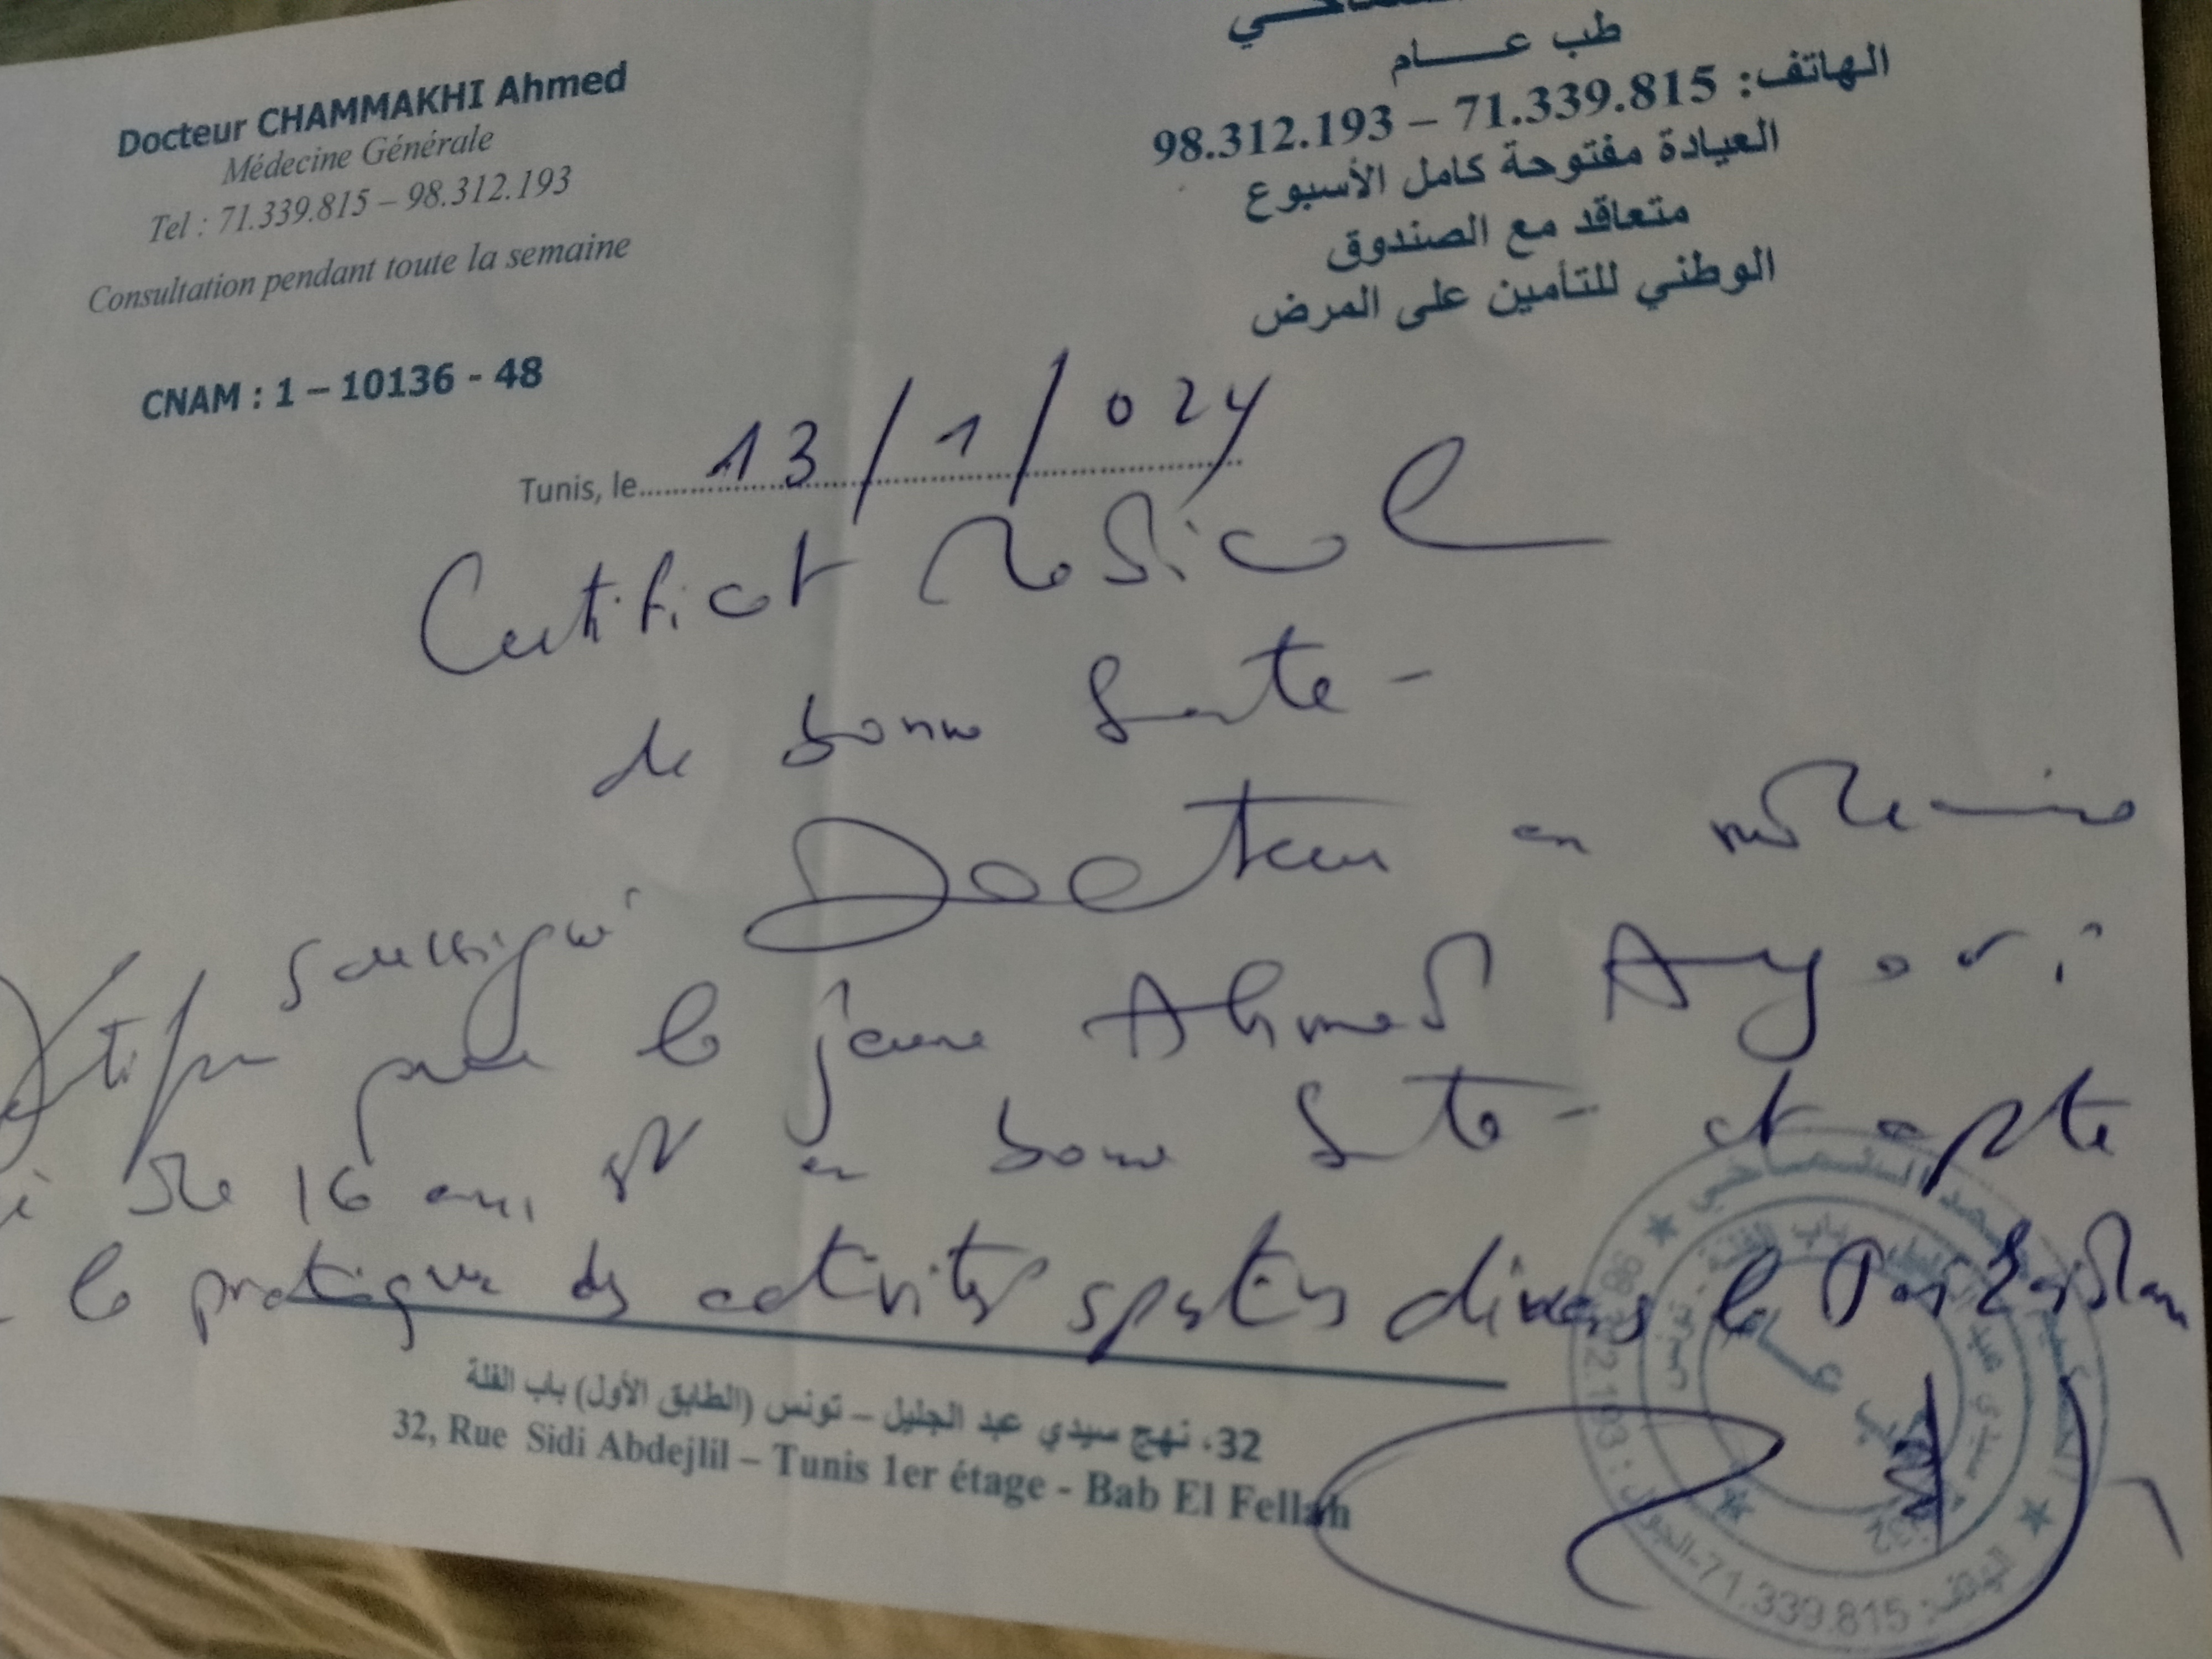 Docteur CHAMMAKHI Ahmed
Médecine Générale
Tel : 71.339.815 – 98.312.193
Consultation pendant toute la semaine
CNAM : 1 – 10136 - 48
طب عـــــام
الهاتف: 71.339.815 – 98.312.193
العيادة مفتوحة كامل الأسبوع
متعاقد مع الصندوق
الوطني للتأمين على المرض
Tunis, le 13/1/024
Certificat Medical
de bonne Sante -
soussigné Docteur en médecine
que le jeune Ahmed
de 16 ans, est en bonne Sante - et apte
la pratique des activités sportives divers le
32، نهج سيدي عبد الجليل – تونس (الطابق الأول) باب الفلة
32, Rue Sidi Abdejlil – Tunis 1er étage - Bab El Fellah
الهاتف: 71.339.815